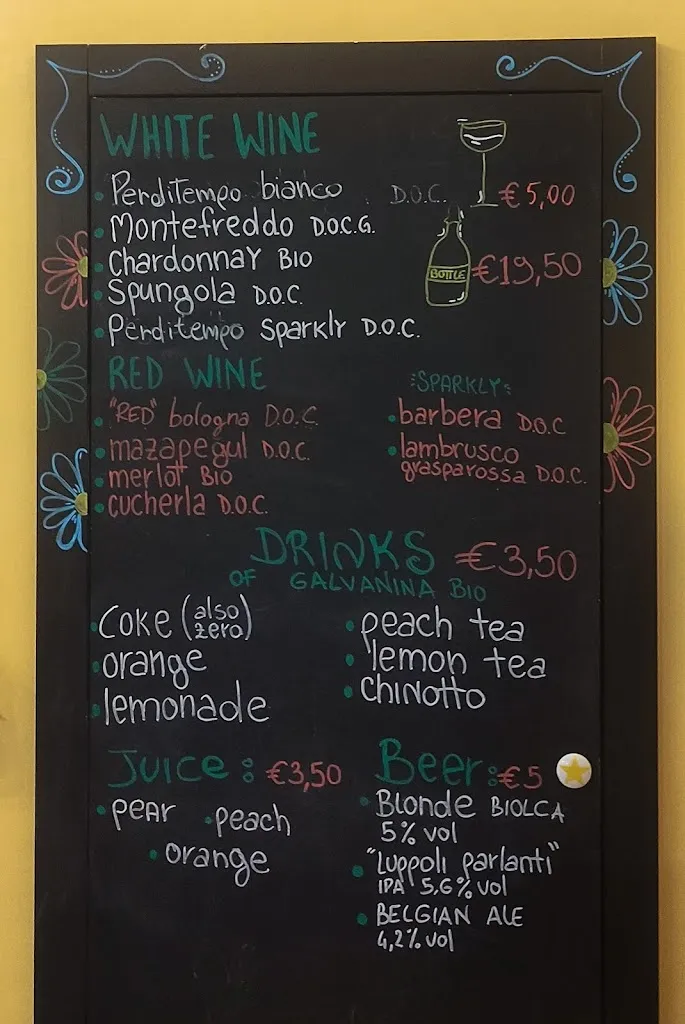 WHITE WINE
• Perditempo bianco . D.O.C.
€5,00
• Montefreddo D.O.C.G.
• Chardonnay BIO
BOTTLE
€19,50
• Spungola D.O.C.
• Perditempo Sparkly D.O.C.
RED WINE
• "RED" bologna D.O.C.
• mazapegul D.O.C.
• merlot BIO
• cucherla D.O.C.
:SPARKLY:
• barbera D.O.C
• lambrusco
grasparossa D.O.C.
DRINKS €3,50
OF GALVANINA BIO
• Coke (also zero)
• orange
• lemonade
• peach tea
• lemon tea
• CHINOTTO
Juice: €3,50
• peAr • peach
• orange
Beer: €5
• Blonde BIOLCA
5% vol
• "Luppoli parlanti"
IPA 5,6% vol
• BELGIAN ALE
4,2% vol